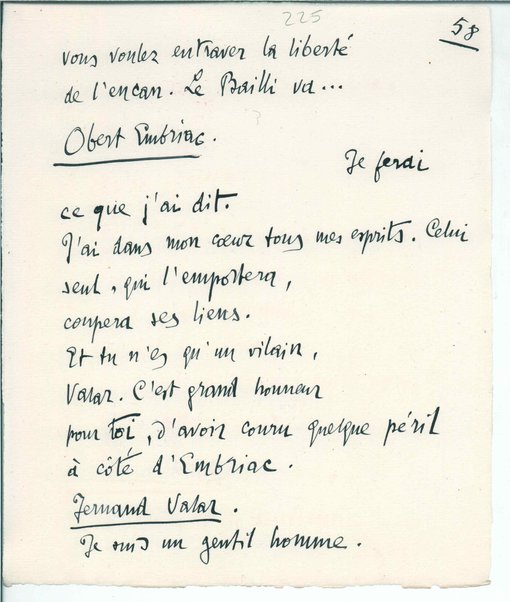 225
58
vous voulez entraver la liberté
de l'encan. Le Bailli va...
Obert Embriac.
Je ferai
ce que j'ai dit.
J'ai dans mon cœur tous mes esprits. Celui
seul, qui l'emportera,
coupera ses liens.
Et tu n'es qu'un vilain,
Valar. C'est grand honneur
pour toi, d'avoir couru quelque péril
à côté d'Embriac.
Fernand Valar.
Je suis un gentil homme.